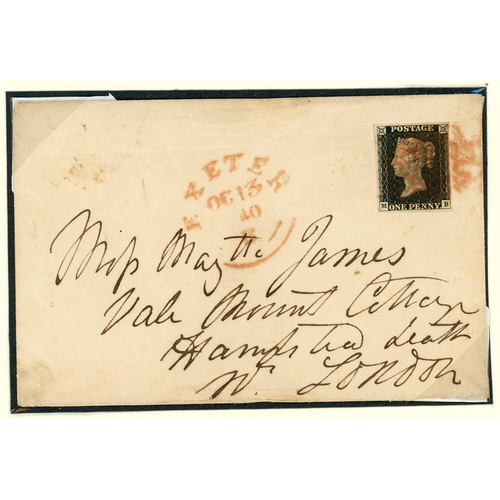 POSTAGE
M B
ONE PENNY
EXETER
OC 13
40
Miss James
Vale Mount Cottage
Hampstead Heath
Nr. London